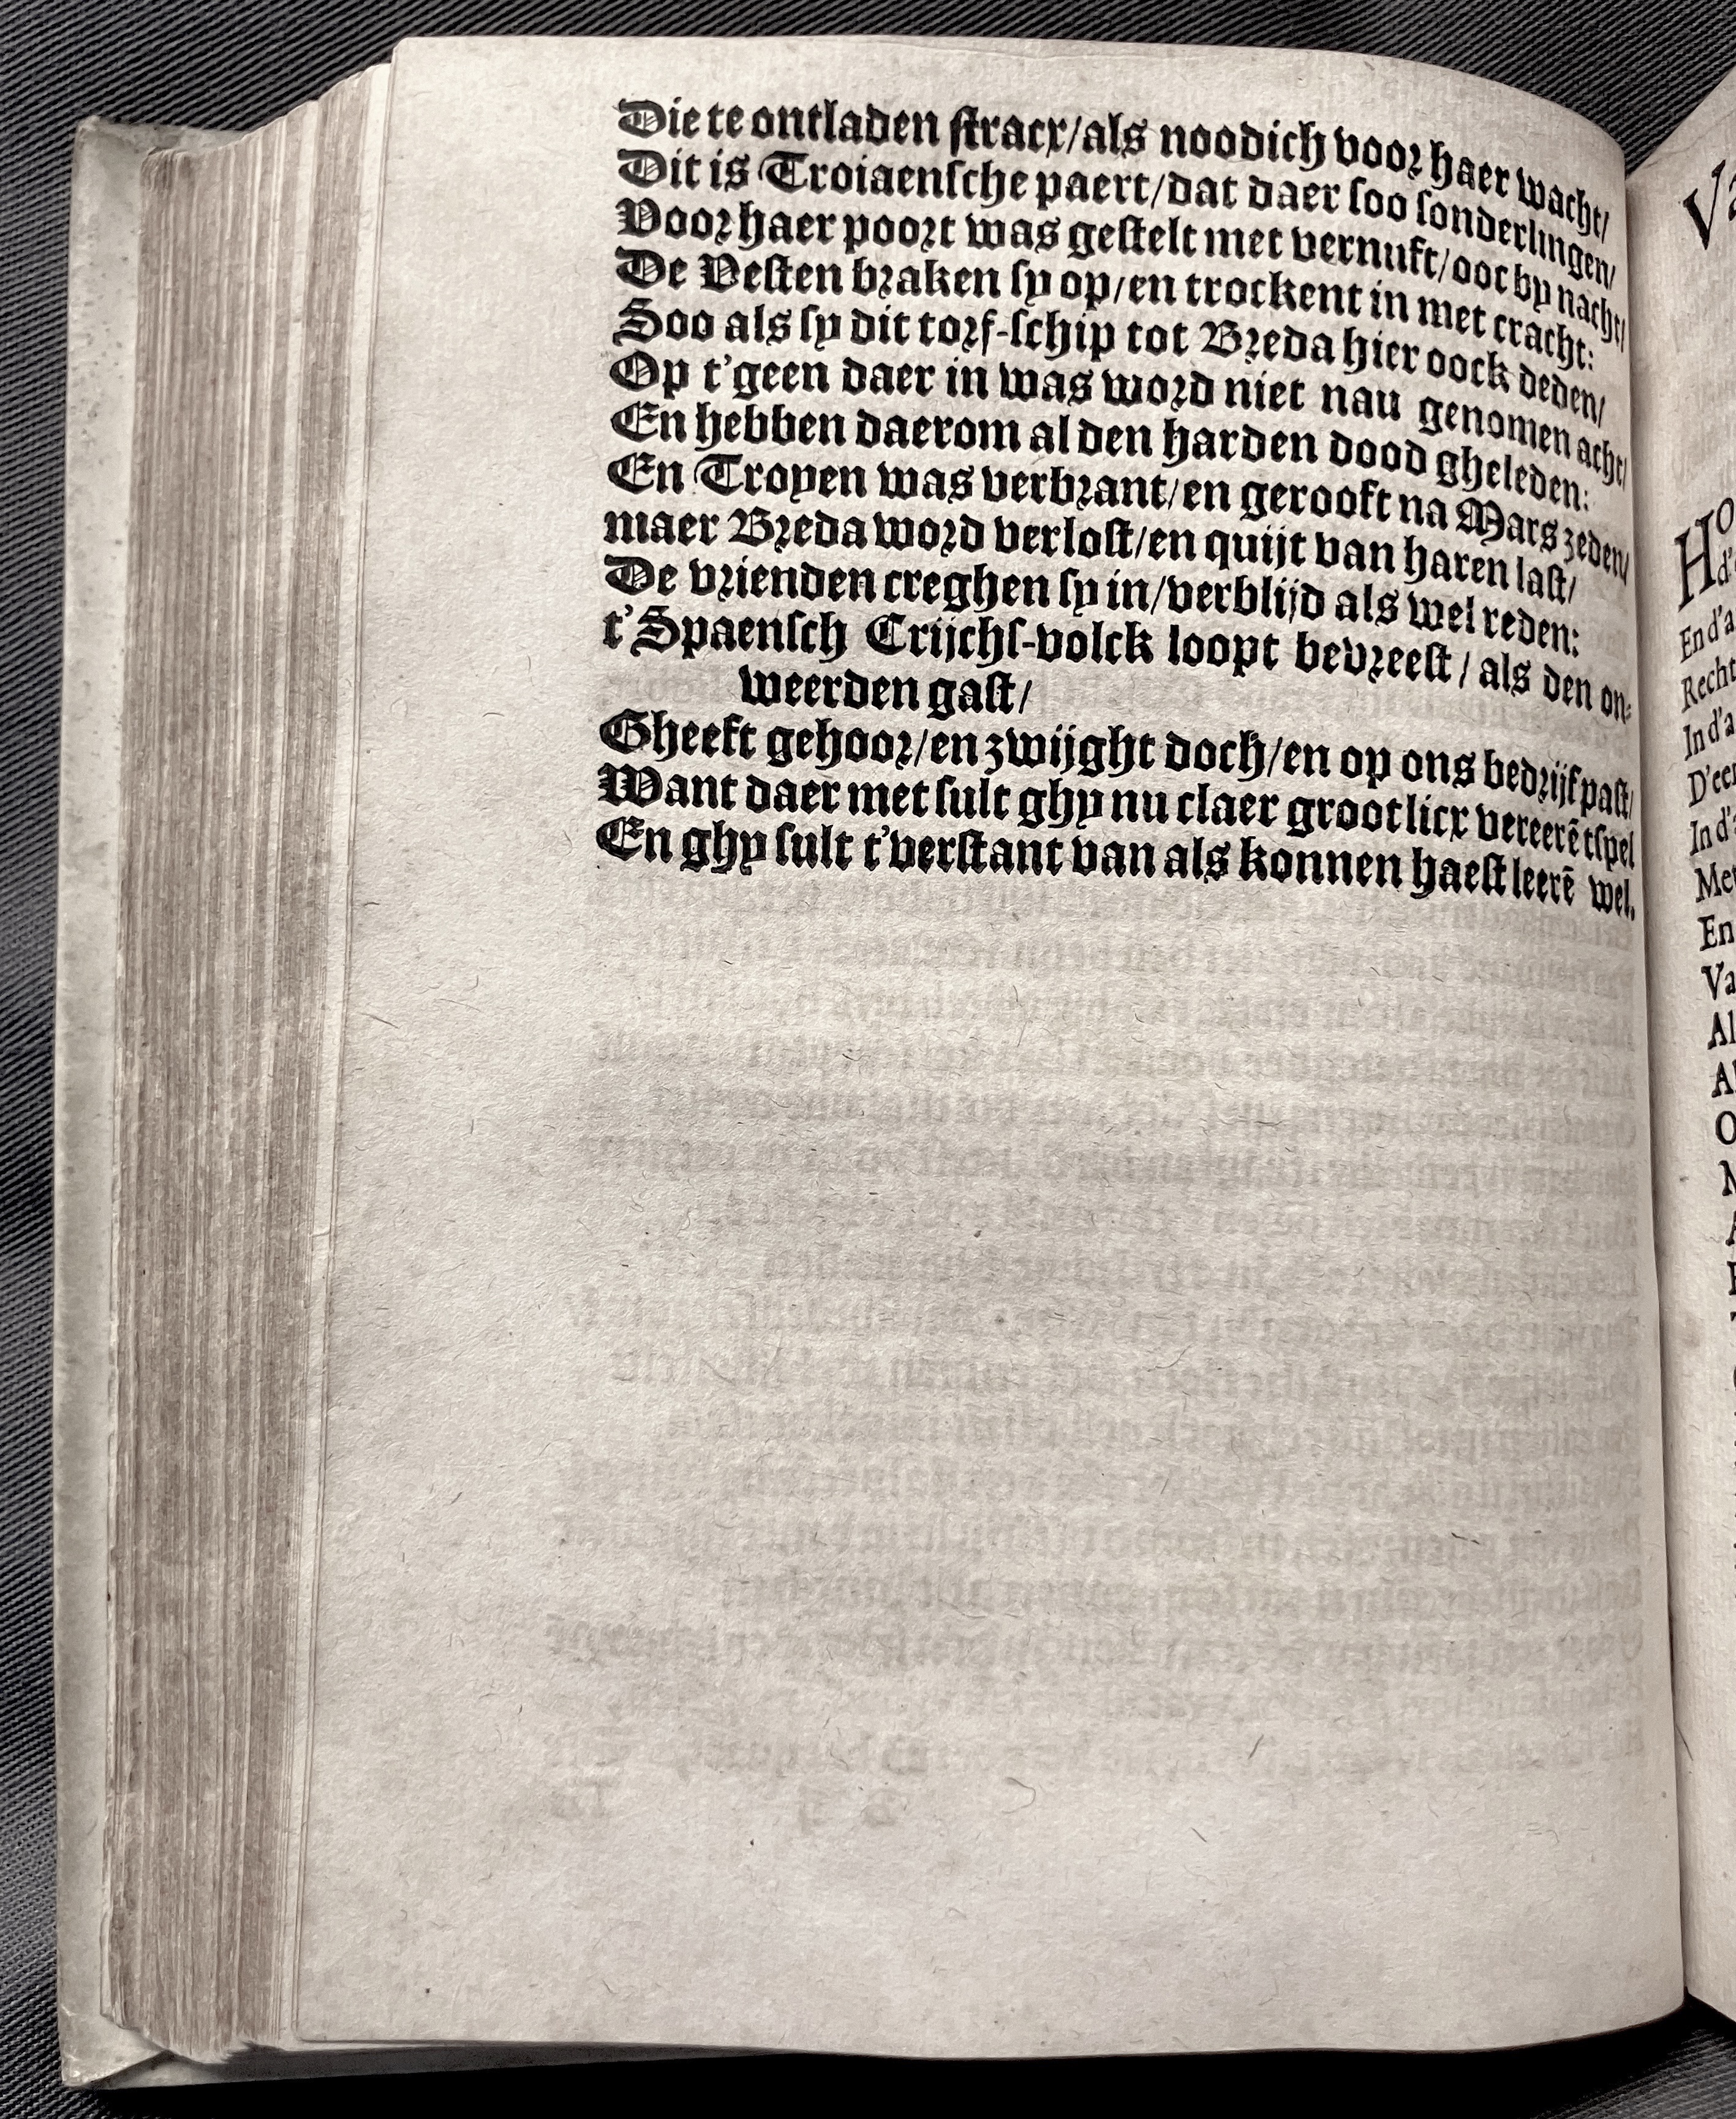 Die te ontladen stracx/als noodich voor haer wacht/
Dit is Troiaensche paert/dat daer soo sonderlingen/
Voor haer poort was gestelt met vernuft/ooc by nacht/
De Vesten braken sy op/en trockent in met cracht:
Soo als sy dit torf-schip tot Breda hier oock deden/
Op t'geen daer in was word niet nau genomen acht/
En hebben daerom al den harden dood gheleden:
En Troyen was verbrant/en gerooft na Mars zeden/
maer Breda word verlost/en quijt van haren last/
De vrienden creghen sy in/verblijd als wel reden:
t'Spaensch Crijchs-volck loopt bevreest / als den on-
weerden gast/
Gheeft gehoor/en zwijght doch/en op ons bedrijf past/
Want daer met sult ghy nu claer grootlicx vereerē tspel
En ghy sult t'verstant van als konnen haest leerē wel.
Ho
En d'a
Recht
In d'a
D'eer
In d'
Met
En
Va
Al